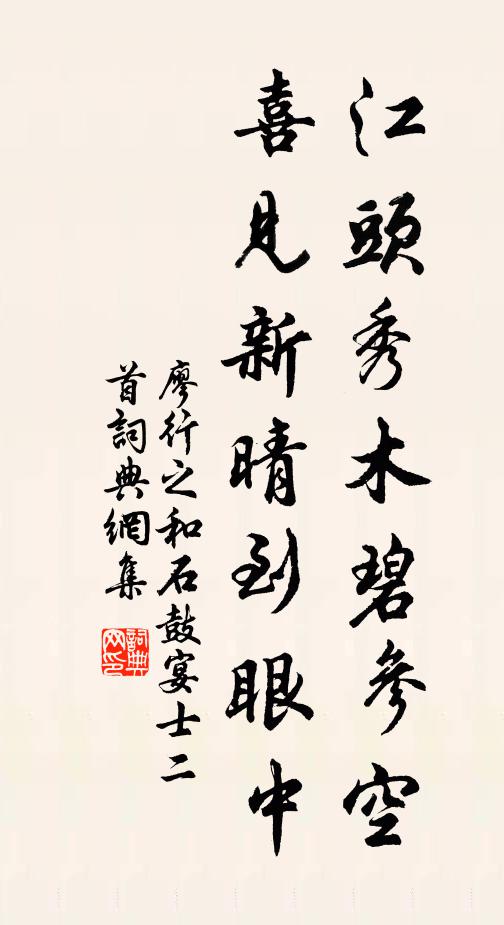 江頭秀木碧參空
喜見新晴到眼中
廖行之和石鼓宴士二
首詞典網集
詞典網印